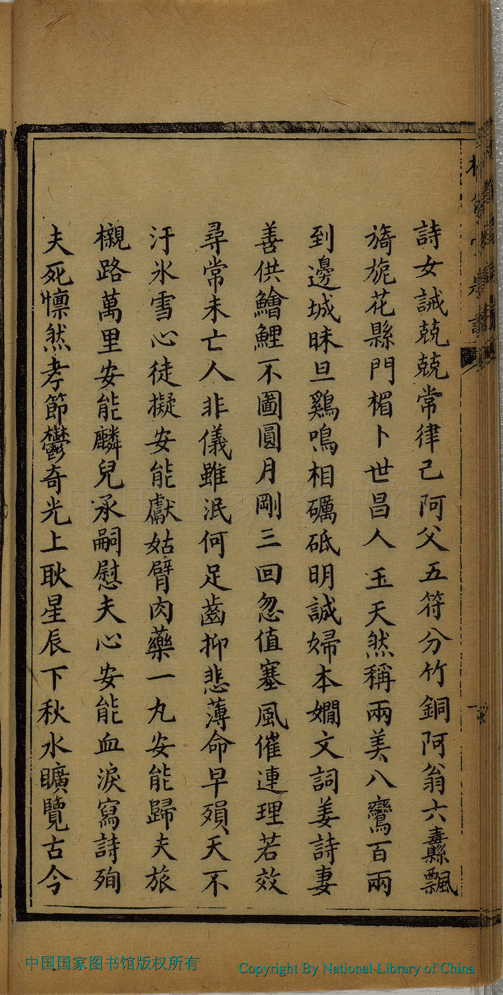 詩女誡兢兢常律己阿父五符分竹銅阿翁六纛飄
旖旎花縣門楣卜世昌人玉天然稱兩美八鸞百兩
到邊城昧旦鷄鳴相礪砥明誠婦本嫺文詞姜詩妻
善供鱠鯉不圖圓月剛三回忽值塞風催連理若效
尋常未亡人非儀雖泯何足齒抑悲薄命早殞天不
汙氷雪心徒擬安能獻姑臂肉藥一丸安能歸夫旅
櫬路萬里安能麟兒承嗣慰夫心安能血淚寫詩殉
夫死懍然孝節鬱奇光上耿星辰下秋水曠覽古今
中国国家图书馆版权所有
Copyright By National Library of China